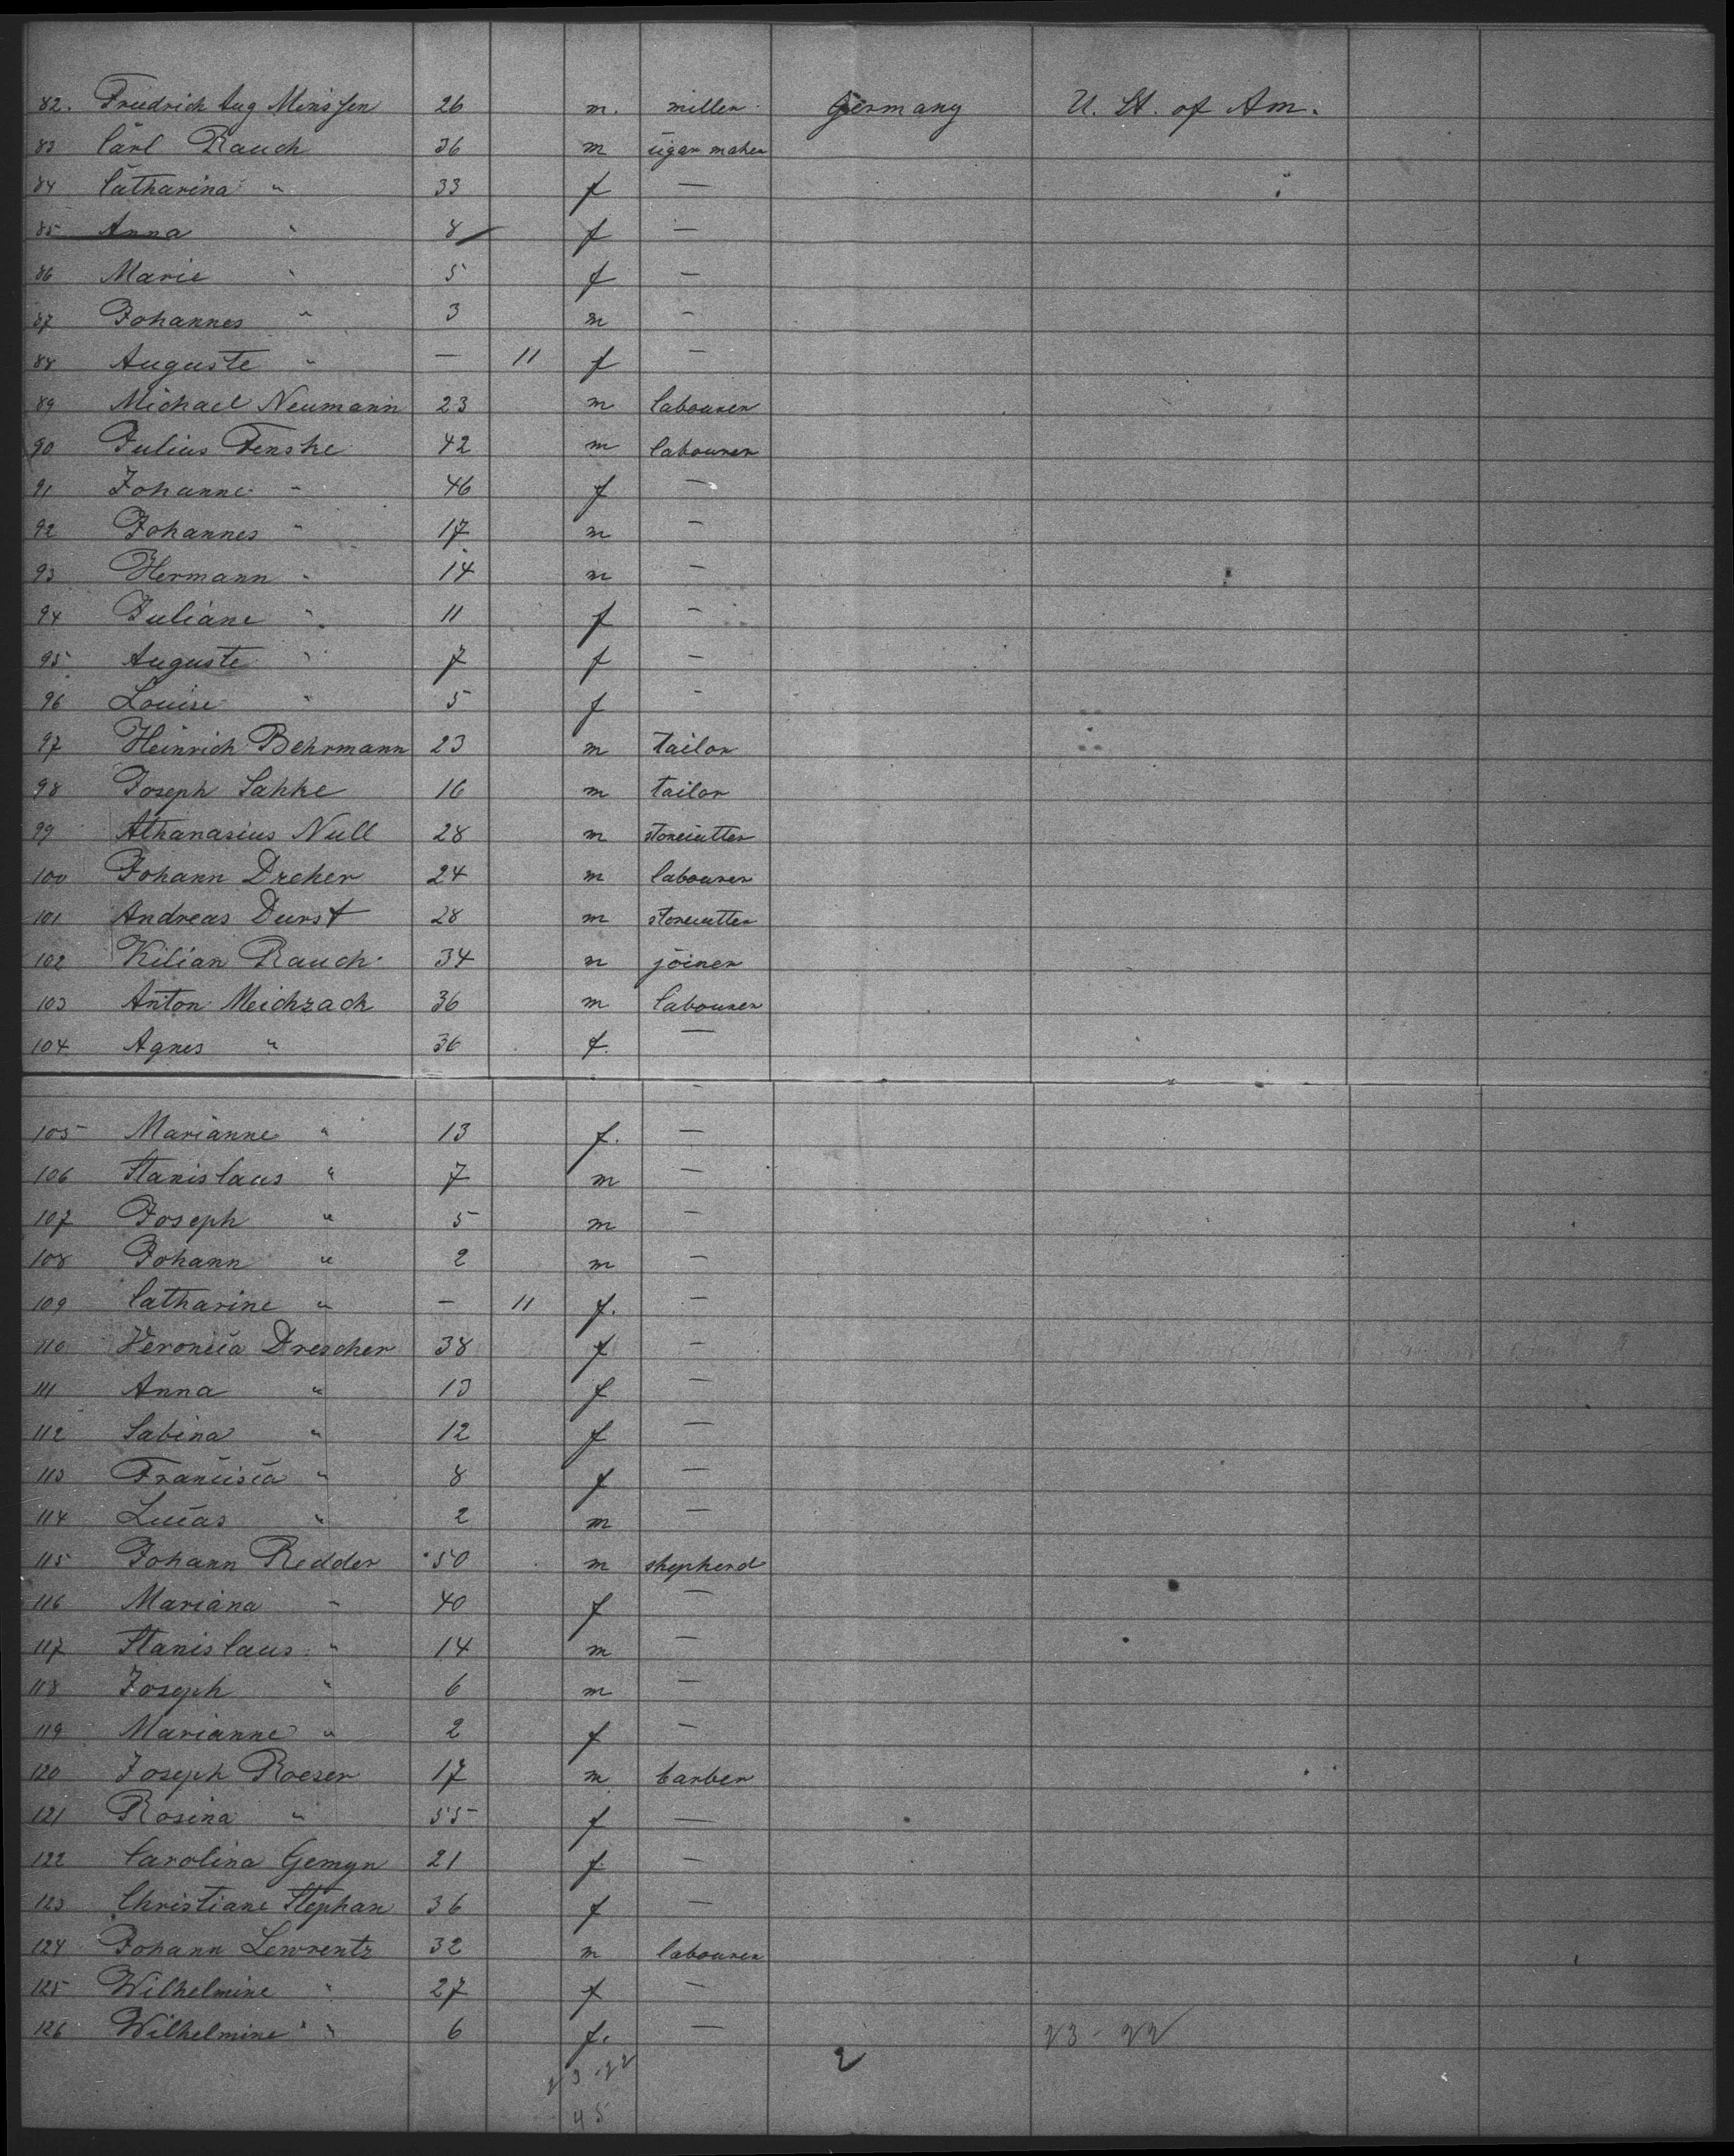 82. Friedrich Aug Minssen 26 m. miller Germany U. St. of Am.
83 Carl Rauch 36 m cigar maker
84 Catharina " 33 f —
85 Anna " 8 f —
86 Marie " 5 f —
87 Johannes " 3 m —
88 Auguste " — 11 f —
89 Michael Neumann 23 m labourer
90 Julius Fenske 42 m labourer
91 Johanne " 46 f —
92 Johannes " 17 m —
93 Hermann " 14 m —
94 Juliane " 11 f —
95 Auguste " 7 f —
96 Louise " 5 f —
97 Heinrich Behrmann 23 m tailor
98 Joseph Sahke 16 m tailor
99 Athanasius Null 28 m stonecutter
100 Johann Dreher 24 m labourer
101 Andreas Durst 28 m stonecutter
102 Kilian Rauch 34 m joiner
103 Anton Meichzack 36 m labourer
104 Agnes " 36 f. —
105 Marianne " 13 f. —
106 Stanislaus " 7 m —
107 Joseph " 5 m —
108 Johann " 2 m —
109 Catharine " — 11 f. —
110 Veronica Drescher 38 f —
111 Anna " 13 f —
112 Sabina " 12 f —
113 Francisca " 8 f —
114 Lucas " 2 m —
115 Johann Redder 50 m shepherd
116 Mariana " 40 f —
117 Stanislaus " 14 m —
118 Joseph " 6 m —
119 Marianne " 2 f —
120 Joseph Roeser 17 m barber
121 Rosina " 55 f —
122 Carolina Gemyn 21 f. —
123 Christiane Stephan 36 f —
124 Johann Lewrentz 32 m labourer
125 Wilhelmine " 27 f —
126 Wilhelmine " 6 f. — 23-22
23-22 2
45